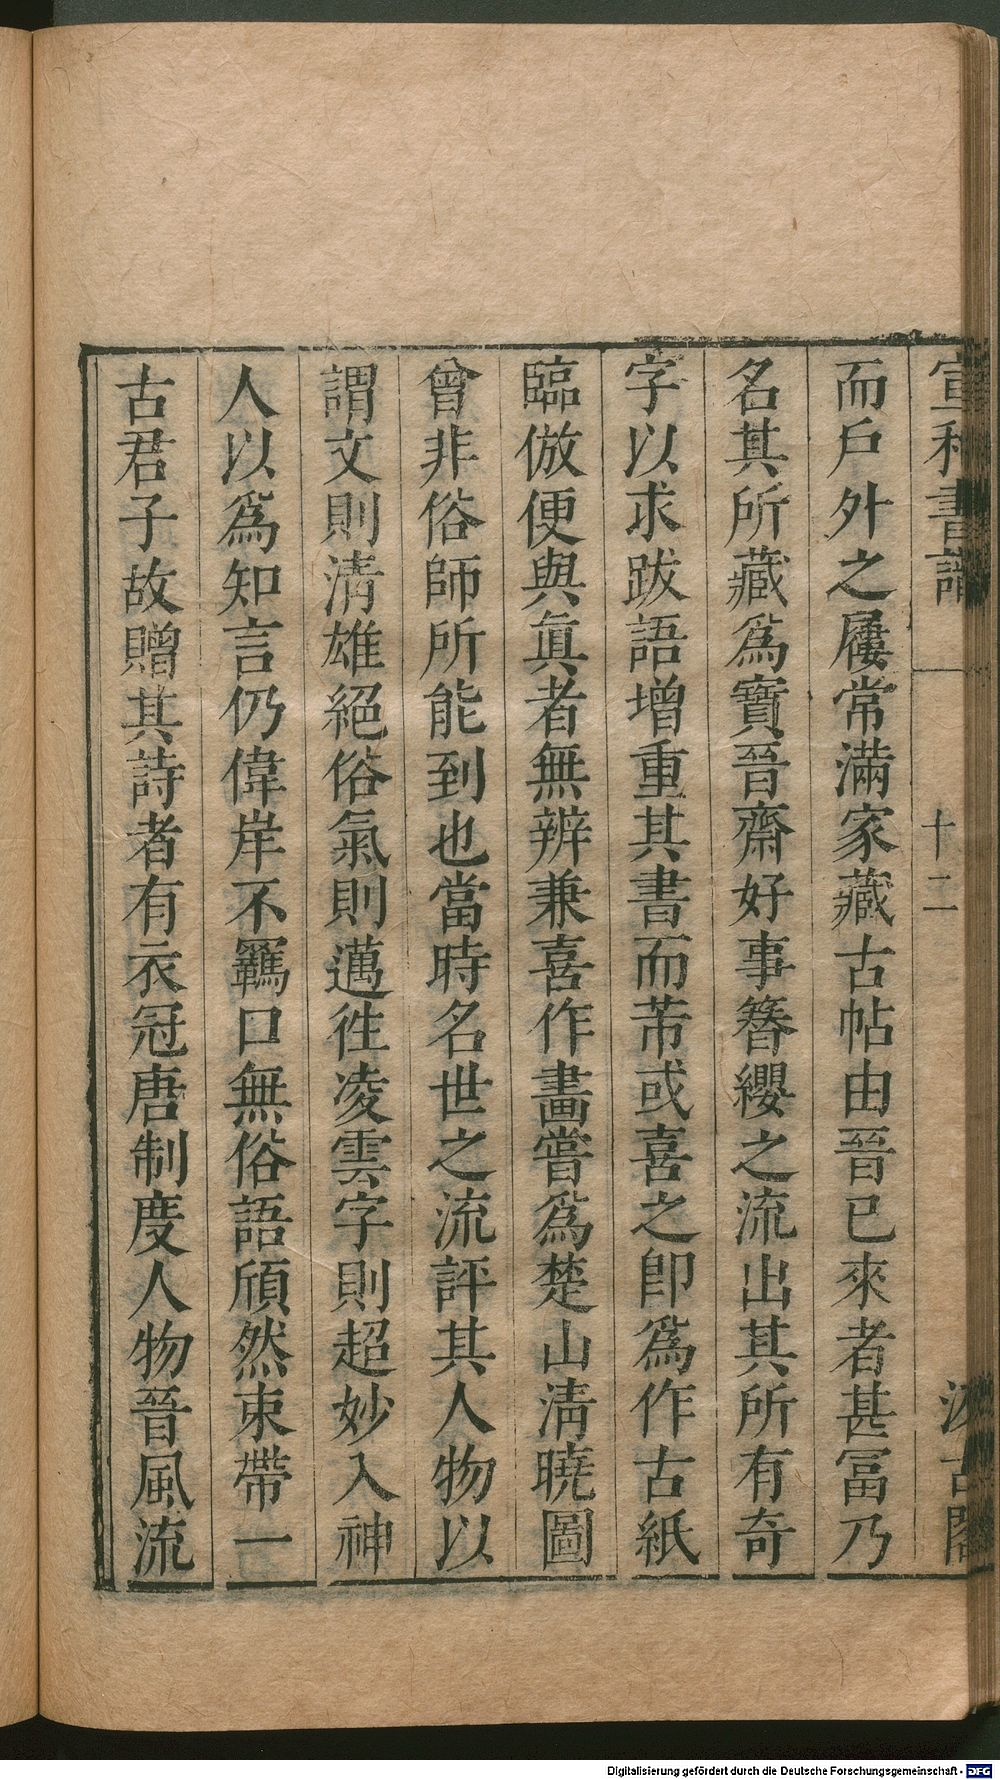 宣和書譜 十二 汲古閣
而戶外之屨常滿家藏古帖由晉已來者甚冨乃
名其所藏爲寶晉齋好事簪纓之流出其所有奇
字以求跋語增重其書而芾或喜之卽爲作古紙
臨倣便與眞者無辨兼喜作畫嘗爲楚山淸曉圖
曾非俗師所能到也當時名世之流評其人物以
謂文則淸雄絕俗氣則邁徃凌雲字則超妙入神
人以爲知言仍偉岸不羈口無俗語頎然束帶一
古君子故贈其詩者有衣冠唐制度人物晉風流
Digitalisierung gefördert durch die Deutsche Forschungsgemeinschaft - DFG